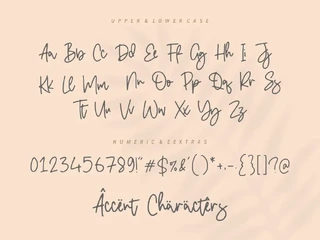 UPPER & LOWER CASE
Aa Bb Cc Dd Ee Ff Gg Hh Ii Jj
Kk Ll Mm Nn Oo Pp Qq Rr Ss
Tt Uu Vv Ww Xx Yy Zz
NUMERIC & EEXTRAS
0123456789!"#$%&'()*+,-.{}[]?@
Âccënt Chäräctérs